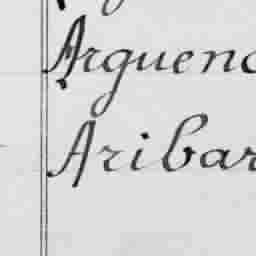 Arguenc
Aribar